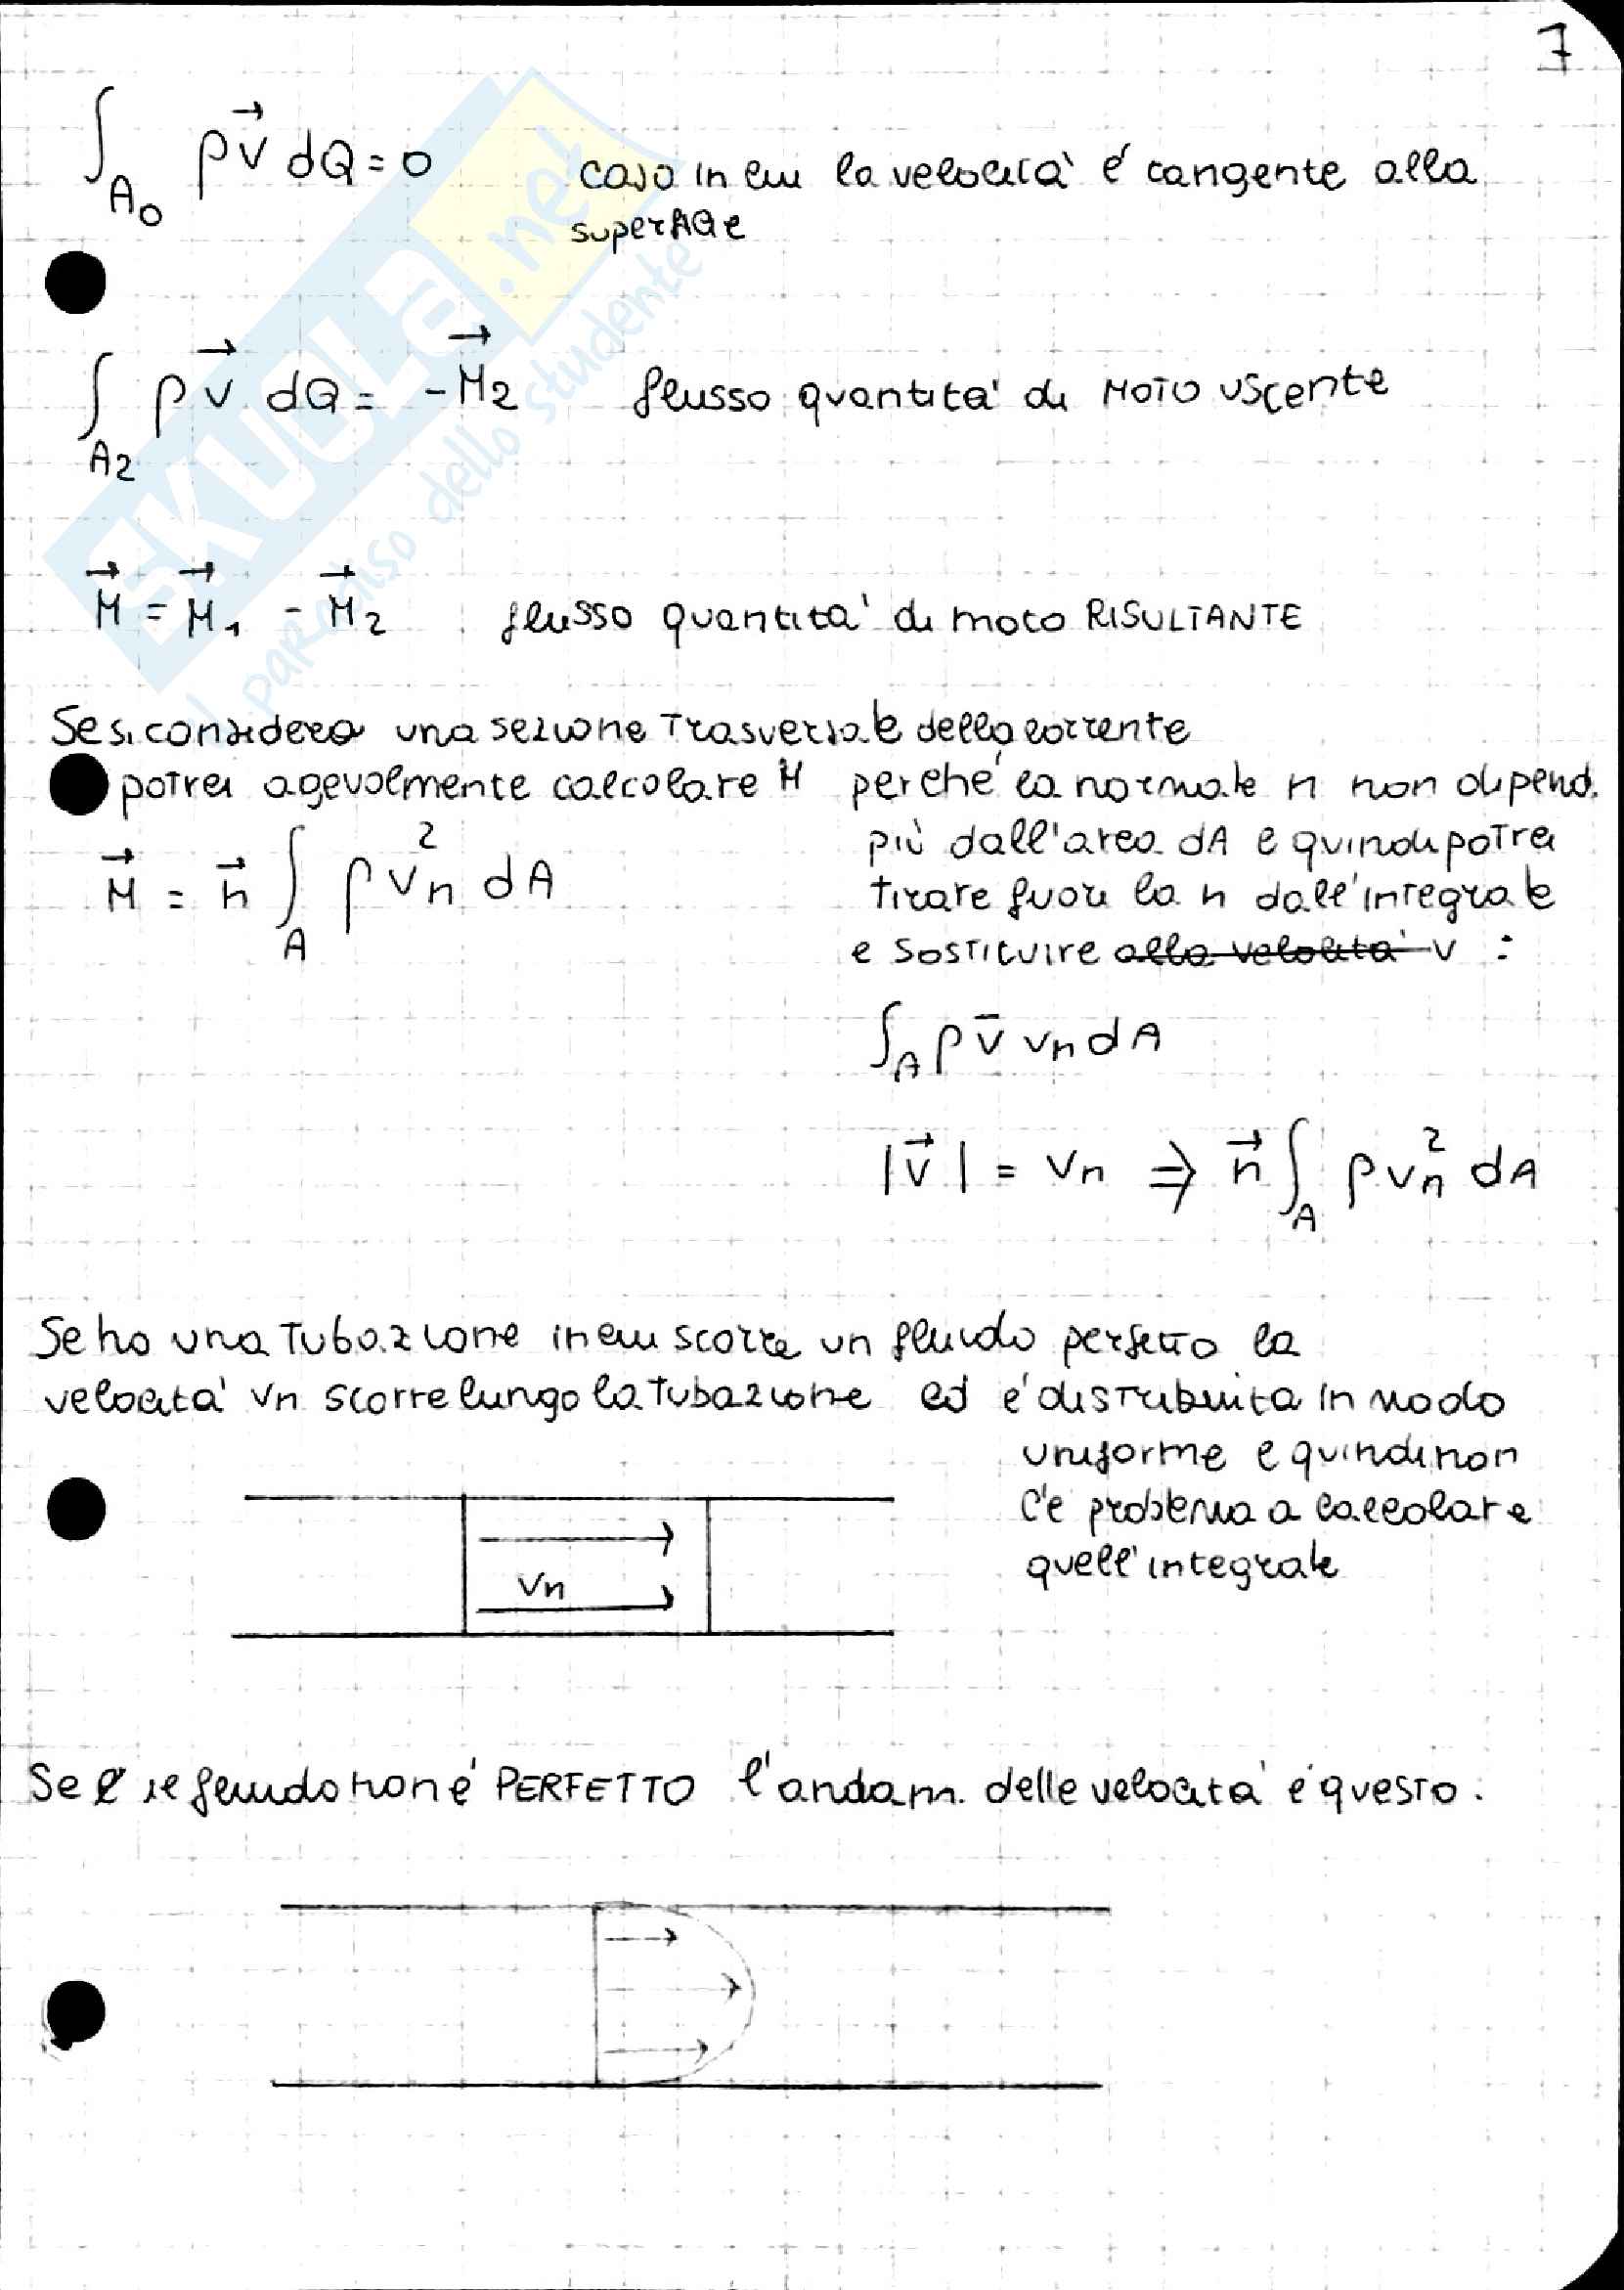 7
∫_A₀ ρv⃗ dQ = 0 caso in cui la velocità é tangente alla
superficie
∫_A2 ρv⃗ dQ = -M⃗₂ flusso quantità di MOTO uscente
M⃗ = M⃗₁ - M⃗₂ flusso quantità di moto RISULTANTE
Se si considera una sezione Trasversale della corrente
potrei agevolmente calcolare M perché la normale n non dipend.
più dall'area dA e quindi potrei
tirare fuori la n dall'integrale
e sostituire alla velocità v :
M⃗ = n⃗ ∫_A ρ v_n² dA
∫_A ρ v̄ v_n dA
|v⃗| = v_n ⇒ n⃗ ∫_A ρ v_n² dA
Se ho una Tubazione in cui scorre un fluido perfetto la
velocità vn scorre lungo la Tubazione ed é distribuita in modo
uniforme e quindi non
c'é problema a calcolare
quell'integrale
vn
Se il fluido non é PERFETTO l'andam. delle velocità é questo.
SKUOLa.net
il paradiso dello studente